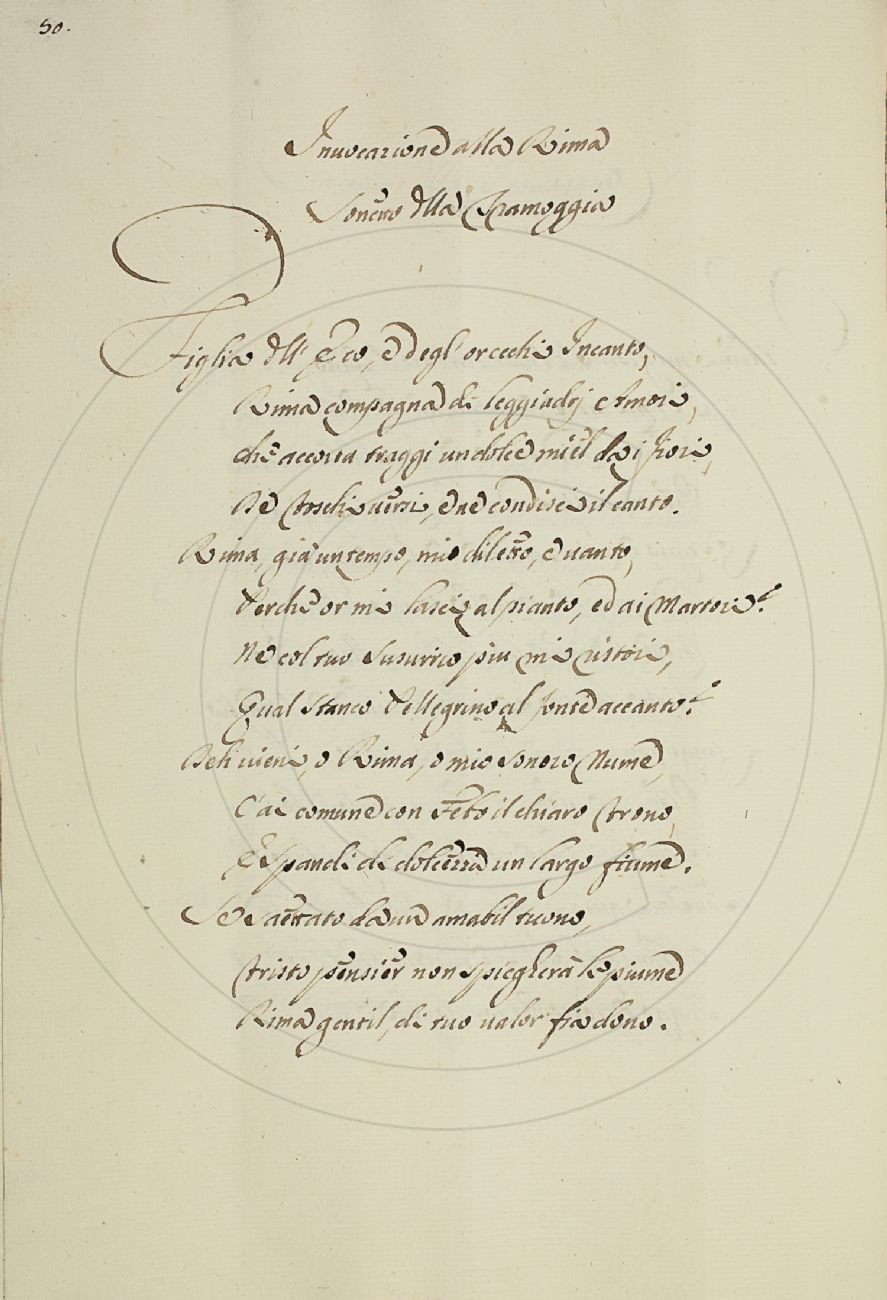 50.
Invocazione alla Rima
Sonetto della Tramoggia
Figlia dell' Eco, e degl' orecchi Incanto,
Rima compagna di leggiadri Amori,
Che accorta traggi un dolce miel da i fiori
De Toschi versi, e ne condisci il canto.
Rima, già un tempo, mio diletto, e vanto,
Perche or mi lasci al pianto, ed ai Martori?
Ne col tuo susurrio piu mi ristori,
Qual stanco Pellegrino al fonte accanto?
Deh vieni, o Rima, o mio sonoro Nume,
C'ai comune con Febo il chiaro trono,
E spandi di dolcezza un largo fiume.
Se saettato da un amabil tuono,
Tristo pensier non spiegherà le piume
Rima gentil, di tuo valor fia dono.